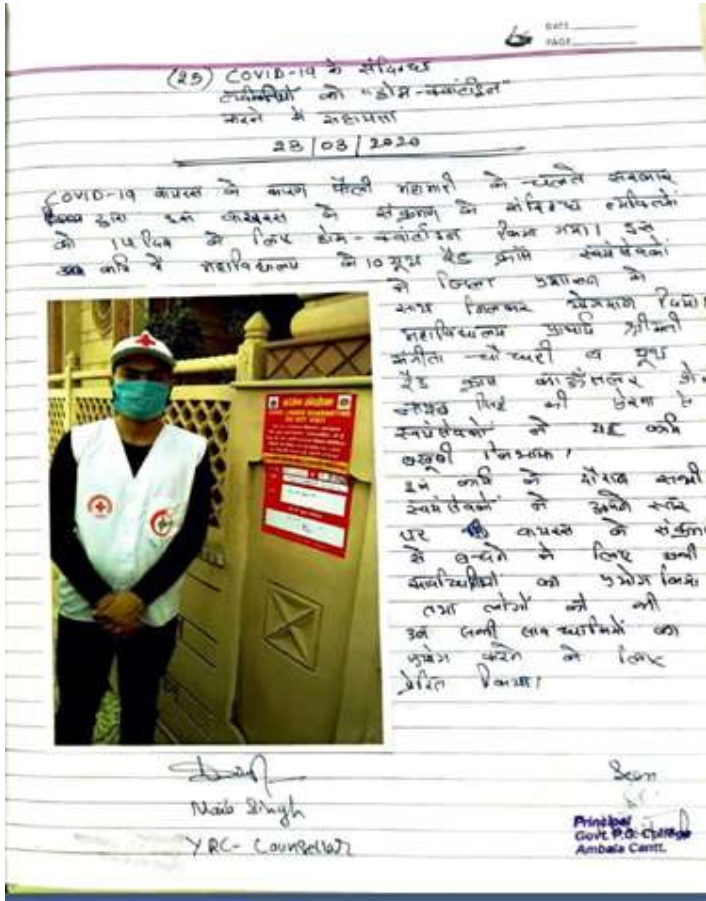 DATE
PAGE
(25) COVID-19 के संदिग्ध
व्यक्तियों को "होम-क्वांटाइन"
करने में सहायता
23/03/2020
COVID-19 वायरस के कारण फैली महामारी के चलते सरकार
द्वारा इस वायरस के संक्रमण के संदिग्ध व्यक्तियों
को 14 दिन के लिए होम-क्वांटाइन किया गया। इस
कार्य में महाविद्यालय के 10 यूथ रैड क्रॉस स्वयंसेवकों
ने जिला प्रशासन के
साथ मिलकर योगदान दिया।
महाविद्यालय प्राचार्य श्रीमती
संगीता चौधरी व यूथ
रैड क्रास काउंसलर
सिंह की प्रेरणा से
स्वयंसेवकों ने यह कार्य
बखूबी निभाया।
इस कार्य के दौरान सभी
स्वयंसेवकों ने अपने स्तर
पर वायरस के संक्रमण
से बचने के लिए सभी
सावधानियों का प्रयोग किया
तथा लोगों को भी
उन सभी सावधानियों का
प्रयोग करने के लिए
प्रेरित किया।
Naib Singh
YRC- Counsellor
Principal
Govt. P.G. College
Ambala Cantt.